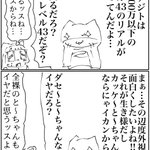 ジトは
00万以下の
43のリアルが
てんだよ…
レベル43だぞ?
まぁ…その辺度外視
面白くしたいよね!!
それが生き様だし
ならにゃイカンから
ダセーと〜ちゃんなん
イヤだろ?
全裸のと〜ちゃんも
イヤだと思うッスよ